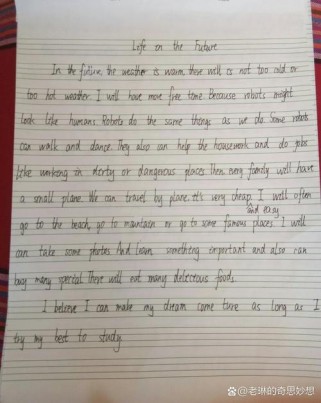 Life on the Future
In the future, the weather is warm, there will is not too cold or
too hot weather. I will have more free time. Because robots might
look like humans. Robots do the same things as we do. Some robots
can walk and dance. They also can help the housework and do jobs
like working in dirty or dangerous places. Then, every family will have
a small plane. We can travel by plane. It's very cheap. I will often
and easy
go to the beach, go to mantain or go to some famous places. I will
can take some photos. And learn something important and also can
buy many special. There will eat many delecteous foods.
I beleve I can make my dream come ture as long as I
try my best to study
@老琳的奇思妙想